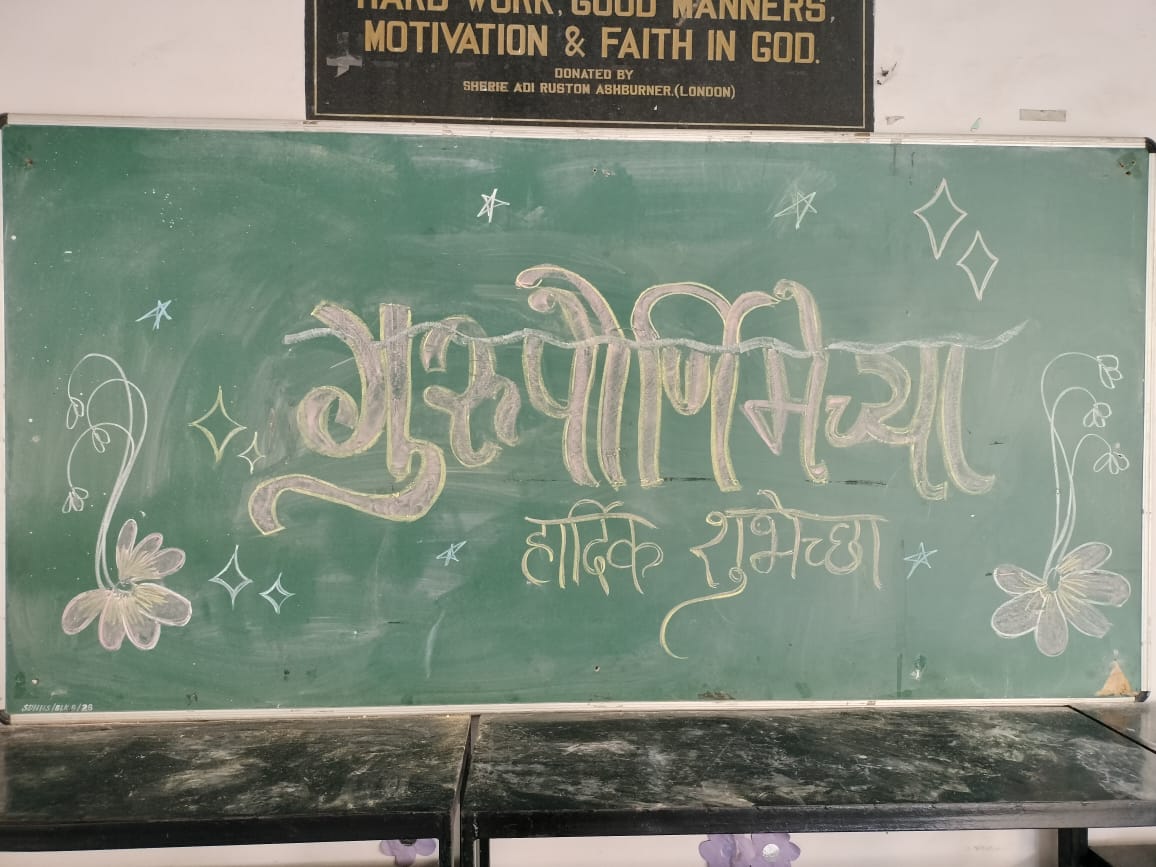 HARD WORK, GOOD MANNERS,
MOTIVATION & FAITH IN GOD.
DONATED BY
SHERIE ADI RUSTOM ASHBURNER.(LONDON)
गुरुपौर्णिमेच्या
हार्दिक शुभेच्छा